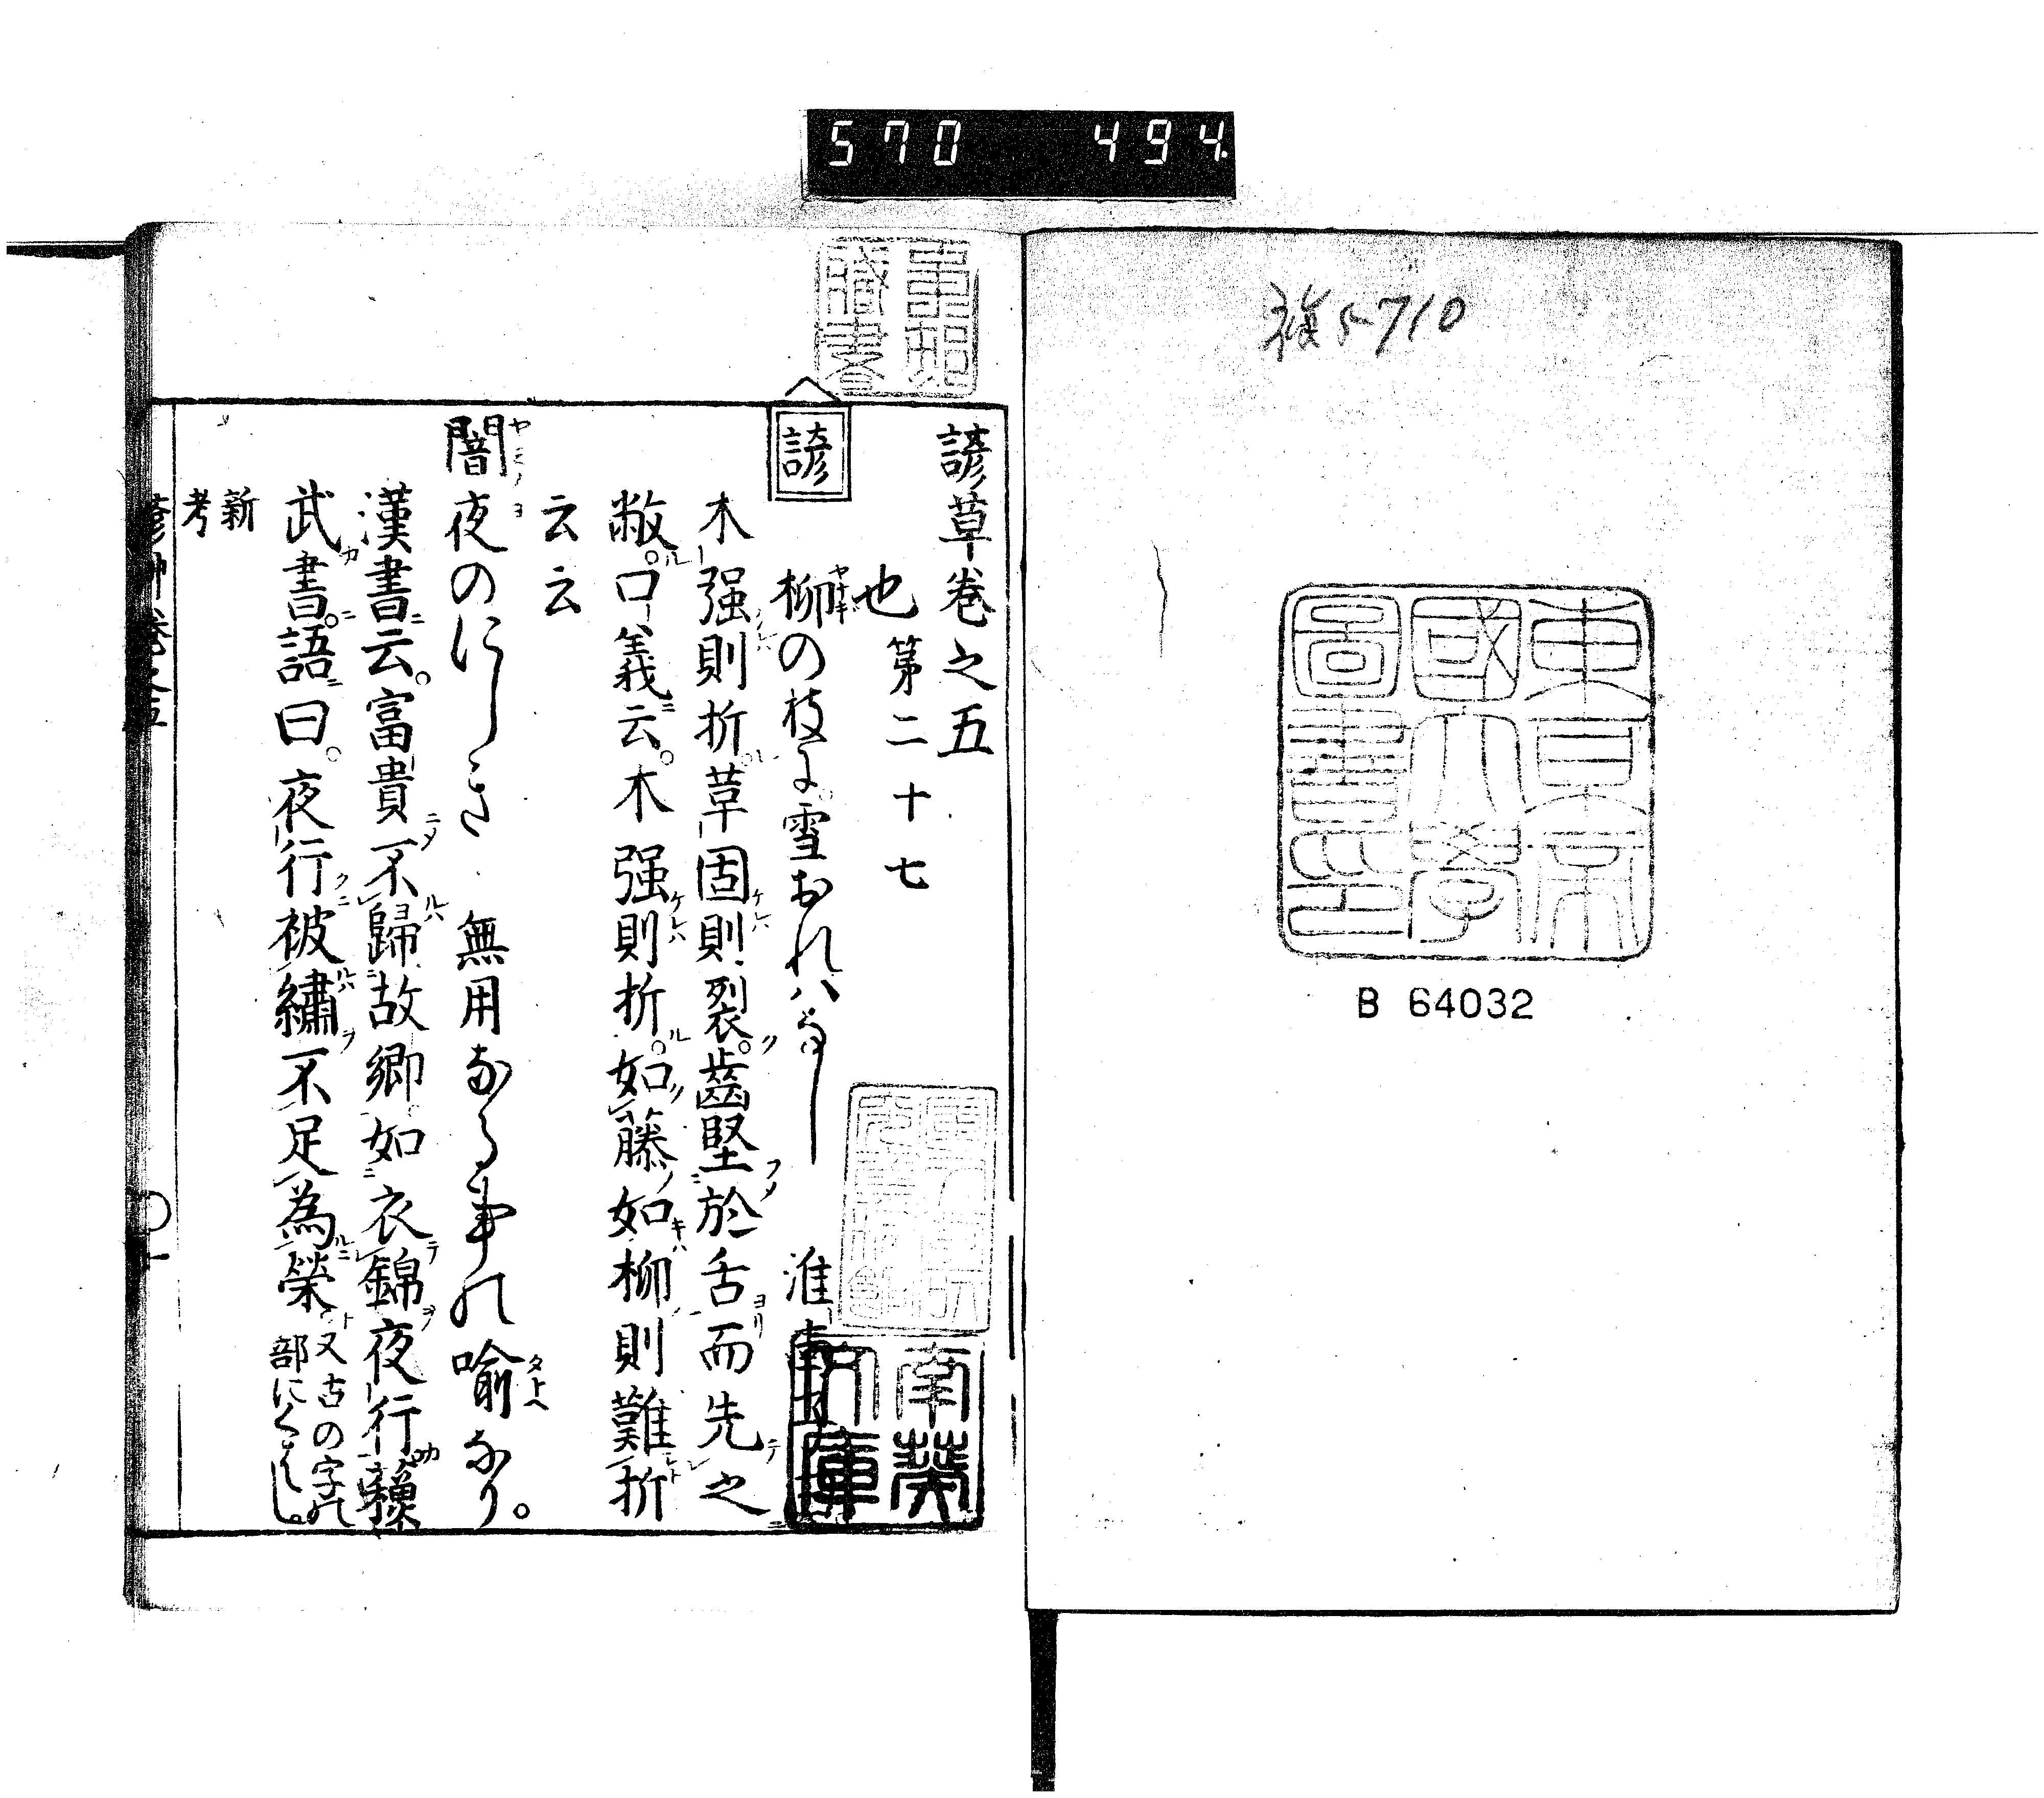 570 494
複5-710
東京帝
國大學
圖書印
B 64032
諺草巻之五
也第二十七
諺
柳の枝に雪おれハなし 淮南
南葵
文庫
木強則折草固則裂。齒堅於舌而先之
敝。口義云。木强則折。如藤如柳則難折
云云
闇夜のにしき 無用なる事の喩なり。
漢書云。富貴不歸故郷如衣錦夜行蘇
武書。語曰。夜行被繡不足為榮
又古の字の
部にくはし。
新
考